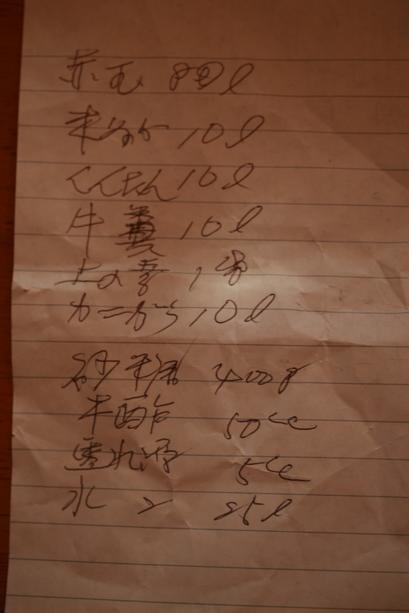 赤玉 80l
米ぬか 10l
くんたん 10l
牛糞 10l
土の素 1袋
カニがら 10l
砂糖 400g
米酢 50cc
水 25l